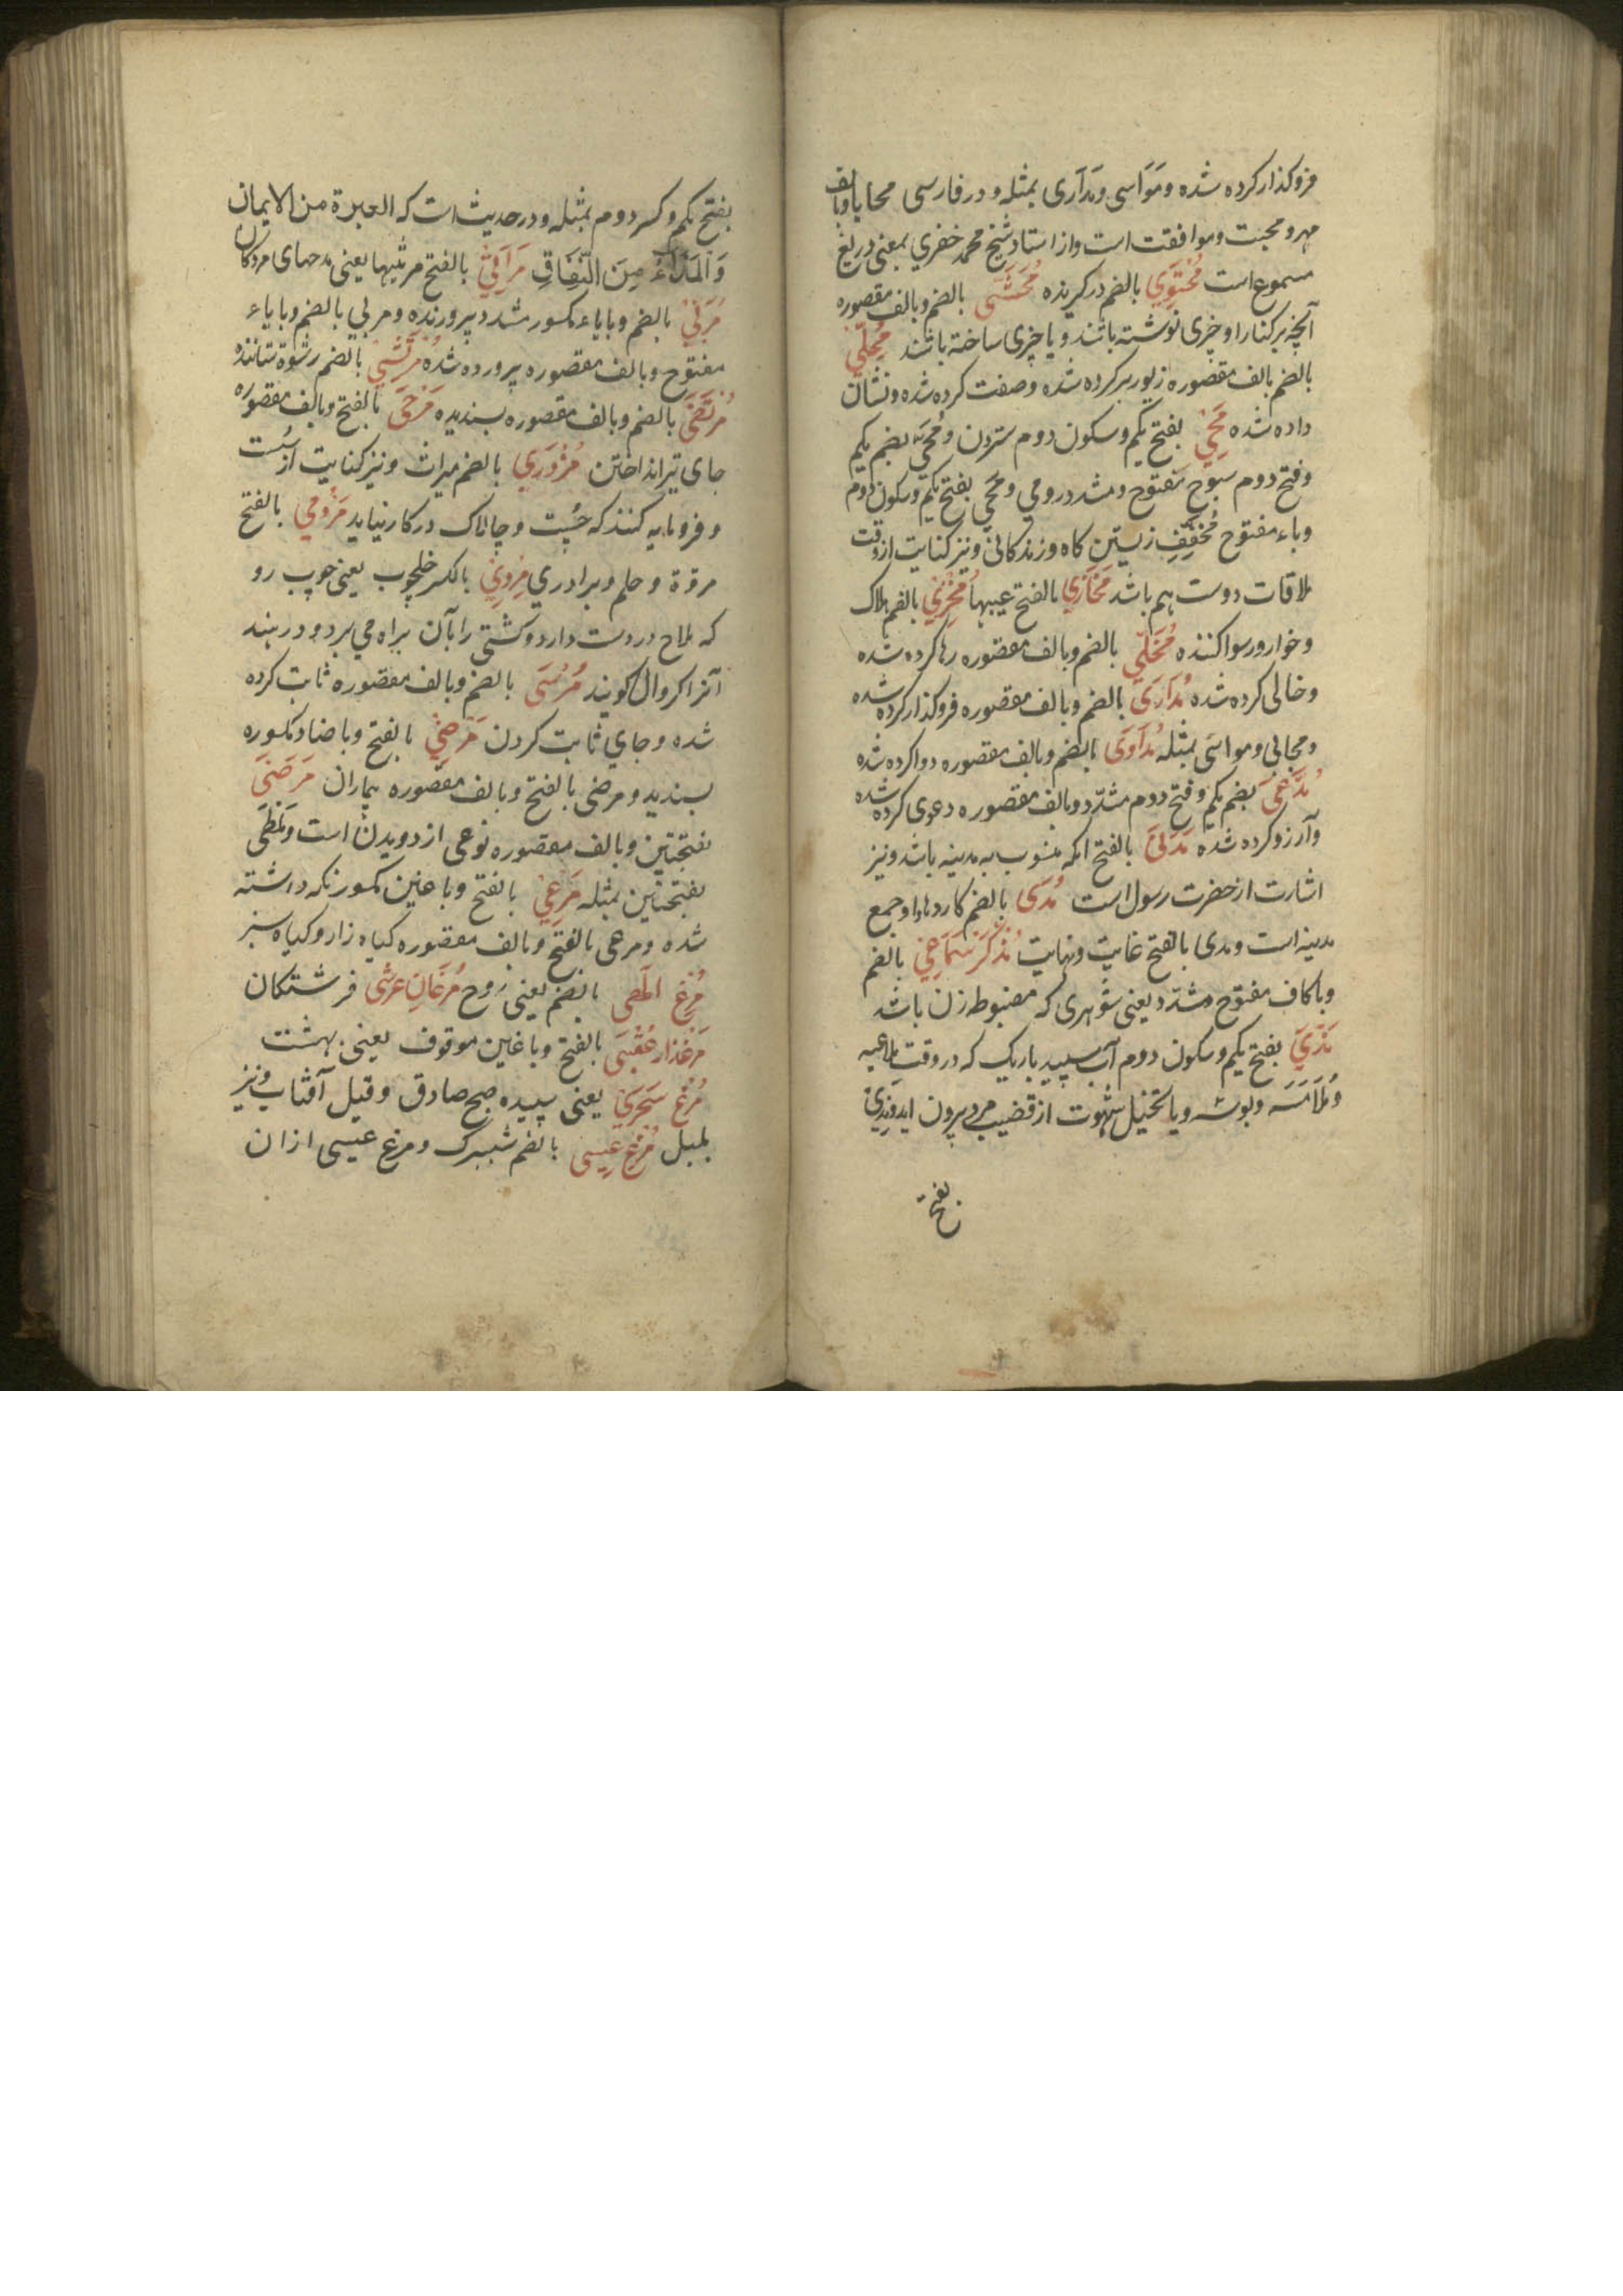 فروکذار کرده شده و مَوَاسی و مَدَآری بمثله و در فارسی محابا وبالف
مهر و محبت و موافقت است و از استاد شیخ محمد خضری بمعنی دریغ
مسموع است مُحْتَوِي بالضم درکیرنده مُحَشَّی بالضم و بالف مقصوره
آنچه بر کنار او چیزی نوشته باشند و یا چیزی ساخته باشند مُحَلّٰی
بالضم بالف مقصوره زیور بر کرده شده و صفت کرده شده و نشان
داده شده مَحْي بفتح یکم و سکون دوم ستردن و بضم یکم
و فتح دوم مفتوح و مشدد رومي و بفتح یکم و سکون دوم
و باء مفتوح مخفف زیستن کاه و زندکانی و نیز کنایت از وقت
ملاقات دوست هم باشد مَخَازِي بالفتح عیبها مُخْزِي بالضم هلاک
و خوار و رسوا کننده مُخَلّٰی بالضم و بالف مقصوره رها کرده شده
و خالی کرده شده مُدَارَی بالضم و بالف مقصوره فروکذار کرده شده
و محابی و مواسَی بمثله مُدَاوَی بالضم و بالف مقصوره دوا کرده شده
مُدَّعٰی بضم یکم و فتح دوم مشدّد و بالف مقصوره دعوی کرده شده
و آرزو کرده شده مَدَنِيّ بالفتح انکه منسوب به مدینه باشد و نیز
اشارت از حضرت رسول است مُدَی بالضم کاردها و جمع
مدینه است و مدی بالفتح غایت و نهایت مُذَکَّر سَمَاعِي بالضم
و با کاف مفتوح و مشدّد یعنی شوهری که مضبوط زن باشد
مَذْيّ بفتح یکم و سکون دوم آب سپید باریک که در وقت ملاعبه
و مُلَامَسَه و بوسه و یا تخیل شهوت از قضیب مرد بیرون اید
بفتح
بفتح یکم و کسر دوم بمثله و در حدیث است که الغیرة من الایمان
وَالمَذَاءُ مِنَ النِّفَاقِ مَرَاثِي بالفتح مرثیها یعنی مدحهای مردکان
مُرَبِّي بالضم و با باء مکسور مشدد پرورنده و مربی بالضم و با باء
مفتوح و بالف مقصوره پرورده شده مُرْتَشِي بالضم رشوة ستاننده
مُرْتَضَی بالضم و بالف مقصوره پسندیده مَرْمَی بالفتح و بالف مقصوره
جای تیر انداختن مُرْدَرِي بالضم میراث و نیز کنایت از سُست
و فرومایه کنند که چُست و چالاک در کار نیاید مَرْدُمي بالفتح
مروّة و حلم و برادری مُرْدِي بالکسر خلچوب یعنی چوب رو
که ملاح در دست دارد و کشتی را بآن براه می برد و در هند
آنرا کروال کویند مُرْسَی بالضم و بالف مقصوره ثابت کرده
شده و جای ثابت کردن مَرْضِي بالفتح و با ضاد مکسوره
پسندیده و مرضی بالفتح و بالف مقصوره بیماران مَرَضَی
بفتحتین و بالف مقصوره نوعی از دویدن است و
بفتحتین بمثله مَرْعِي بالفتح و با عین مکسور نکه داشته
شده و مرعی بالفتح و بالف مقصوره کیاه زار و کیاه سبز
مُرغِ الٰهی بالضم یعنی روح مُرغَانِ عَرشی فرشتکان
مَرغذار عُقْبَی بالفتح و با غین موقوف یعنی بهشت
مُرْغ سَحَرِي یعنی سپیده صبح صادق و قیل آفتاب و نیز
بلبل مُرْغِ عِیسی بالضم شبپرک و مرغ عیسی ازان